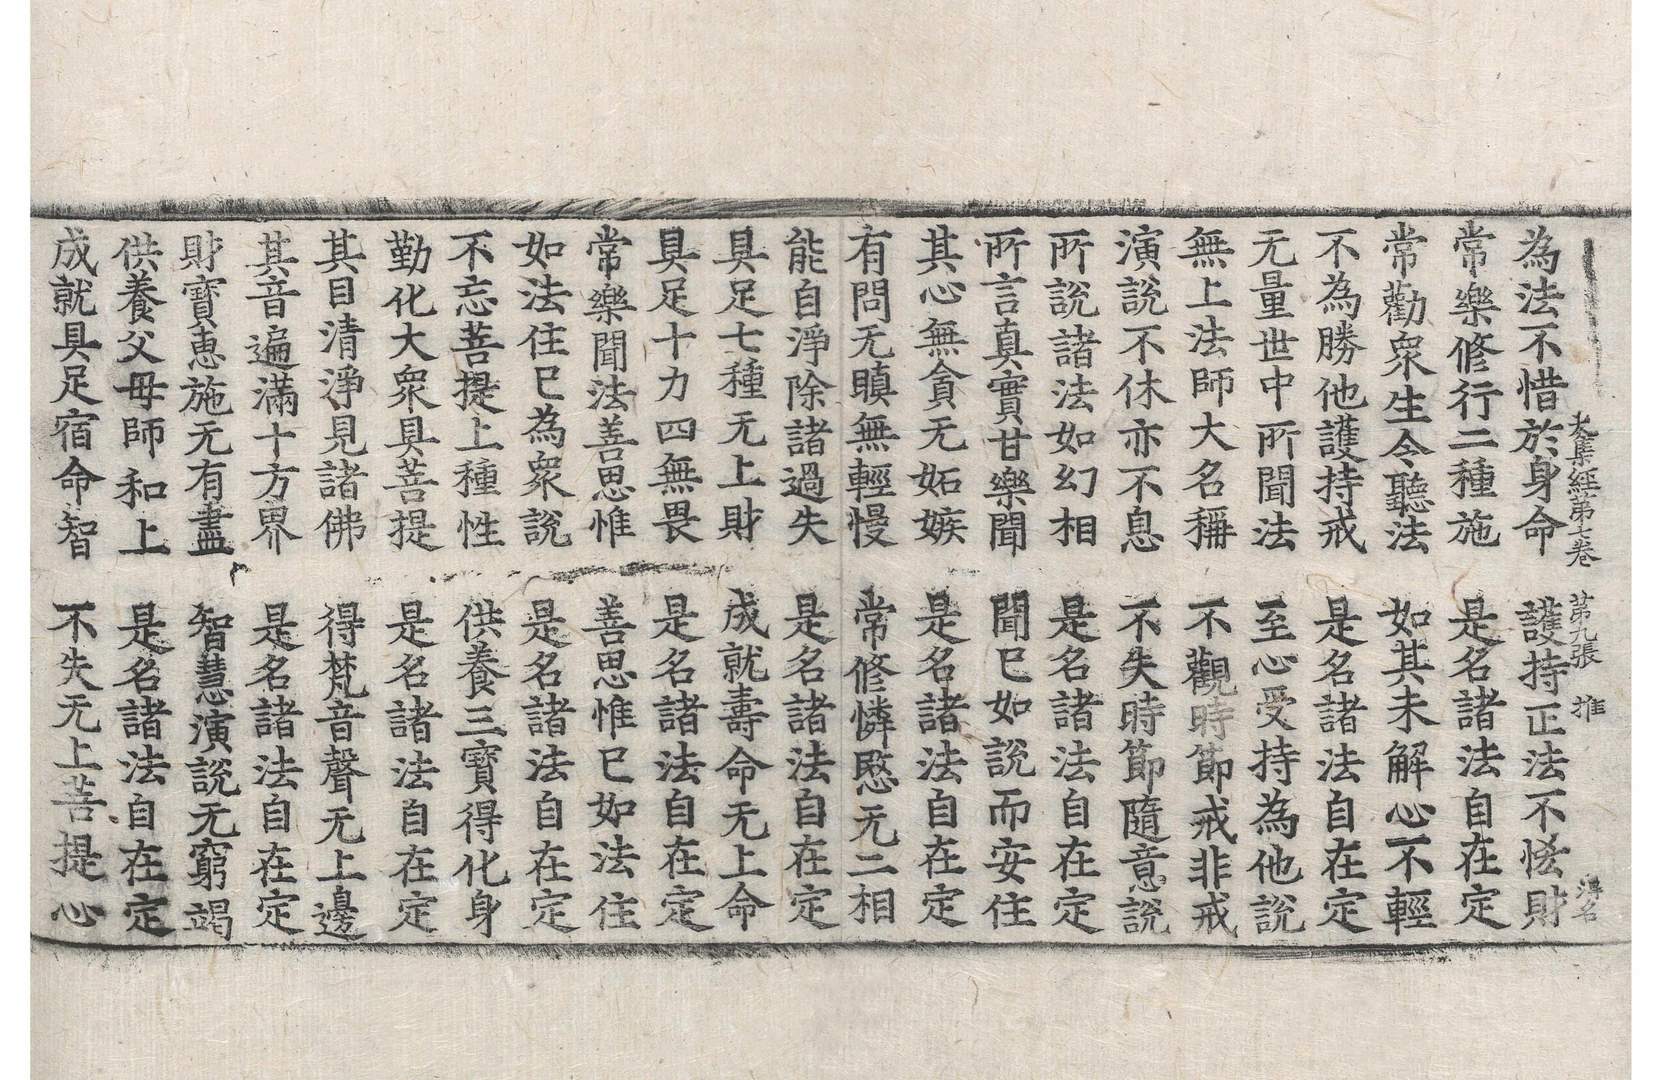 大集經第七卷 第九張 推 淳名
為法不惜於身命 護持正法不悋財
常樂修行二種施 是名諸法自在定
常勸衆生令聽法 如其未解心不輕
不為勝他護持戒 是名諸法自在定
无量世中所聞法 至心受持為他說
無上法師大名稱 不觀時節戒非戒
演說不休亦不息 不失時節隨意說
所說諸法如幻相 是名諸法自在定
所言真實甘樂聞 聞已如說而安住
其心無貪无妬嫉 是名諸法自在定
有問无瞋無輕慢 常修憐愍无二相
能自淨除諸過失 是名諸法自在定
具足七種无上財 成就壽命无上命
具足十力四無畏 是名諸法自在定
常樂聞法善思惟 善思惟已如法住
如法住已為衆說 是名諸法自在定
不忘菩提上種性 供養三寶得化身
勤化大衆具菩提 是名諸法自在定
其目清淨見諸佛 得梵音聲无上邊
其音遍滿十方界 是名諸法自在定
財寶惠施无有盡 智慧演說无窮竭
供養父母師和上 是名諸法自在定
成就具足宿命智 不失无上菩提心